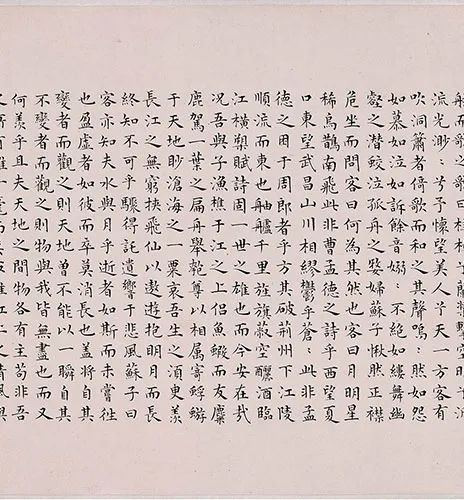 流光渺：兮予懷望美人兮天一方客有
吹洞簫者倚歌而和之其聲嗚：然如怨
如慕如泣如訴餘音嫋：不絕如縷舞幽
壑之潛蛟泣孤舟之嫠婦蘇子愀然正襟
危坐而問客曰何為其然也客曰月明星
稀烏鵲南飛此非曹孟德之詩乎西望夏
口東望武昌山川相繆鬱乎蒼：此非孟
德之困于周郎者乎方其破荊州下江陵
順流而東也舳艫千里旌旗蔽空釃酒臨
江橫槊賦詩固一世之雄也而今安在哉
況吾與子漁樵于江之上侶魚鰕而友麋
鹿駕一葉之扁舟舉匏尊以相屬寄蜉蝣
于天地眇滄海之一粟哀吾生之須臾羨
長江之無窮挾飛仙以遨遊抱明月而長
終知不可乎驟得託遺響于悲風蘇子曰
客亦知夫水與月乎逝者如斯而未嘗往
也盈虛者如彼而卒莫消長也蓋將自其
變者而觀之則天地曾不能以一瞬自其
不變者而觀之則物與我皆無盡也而又
何羨乎且夫天地之間物各有主苟非吾